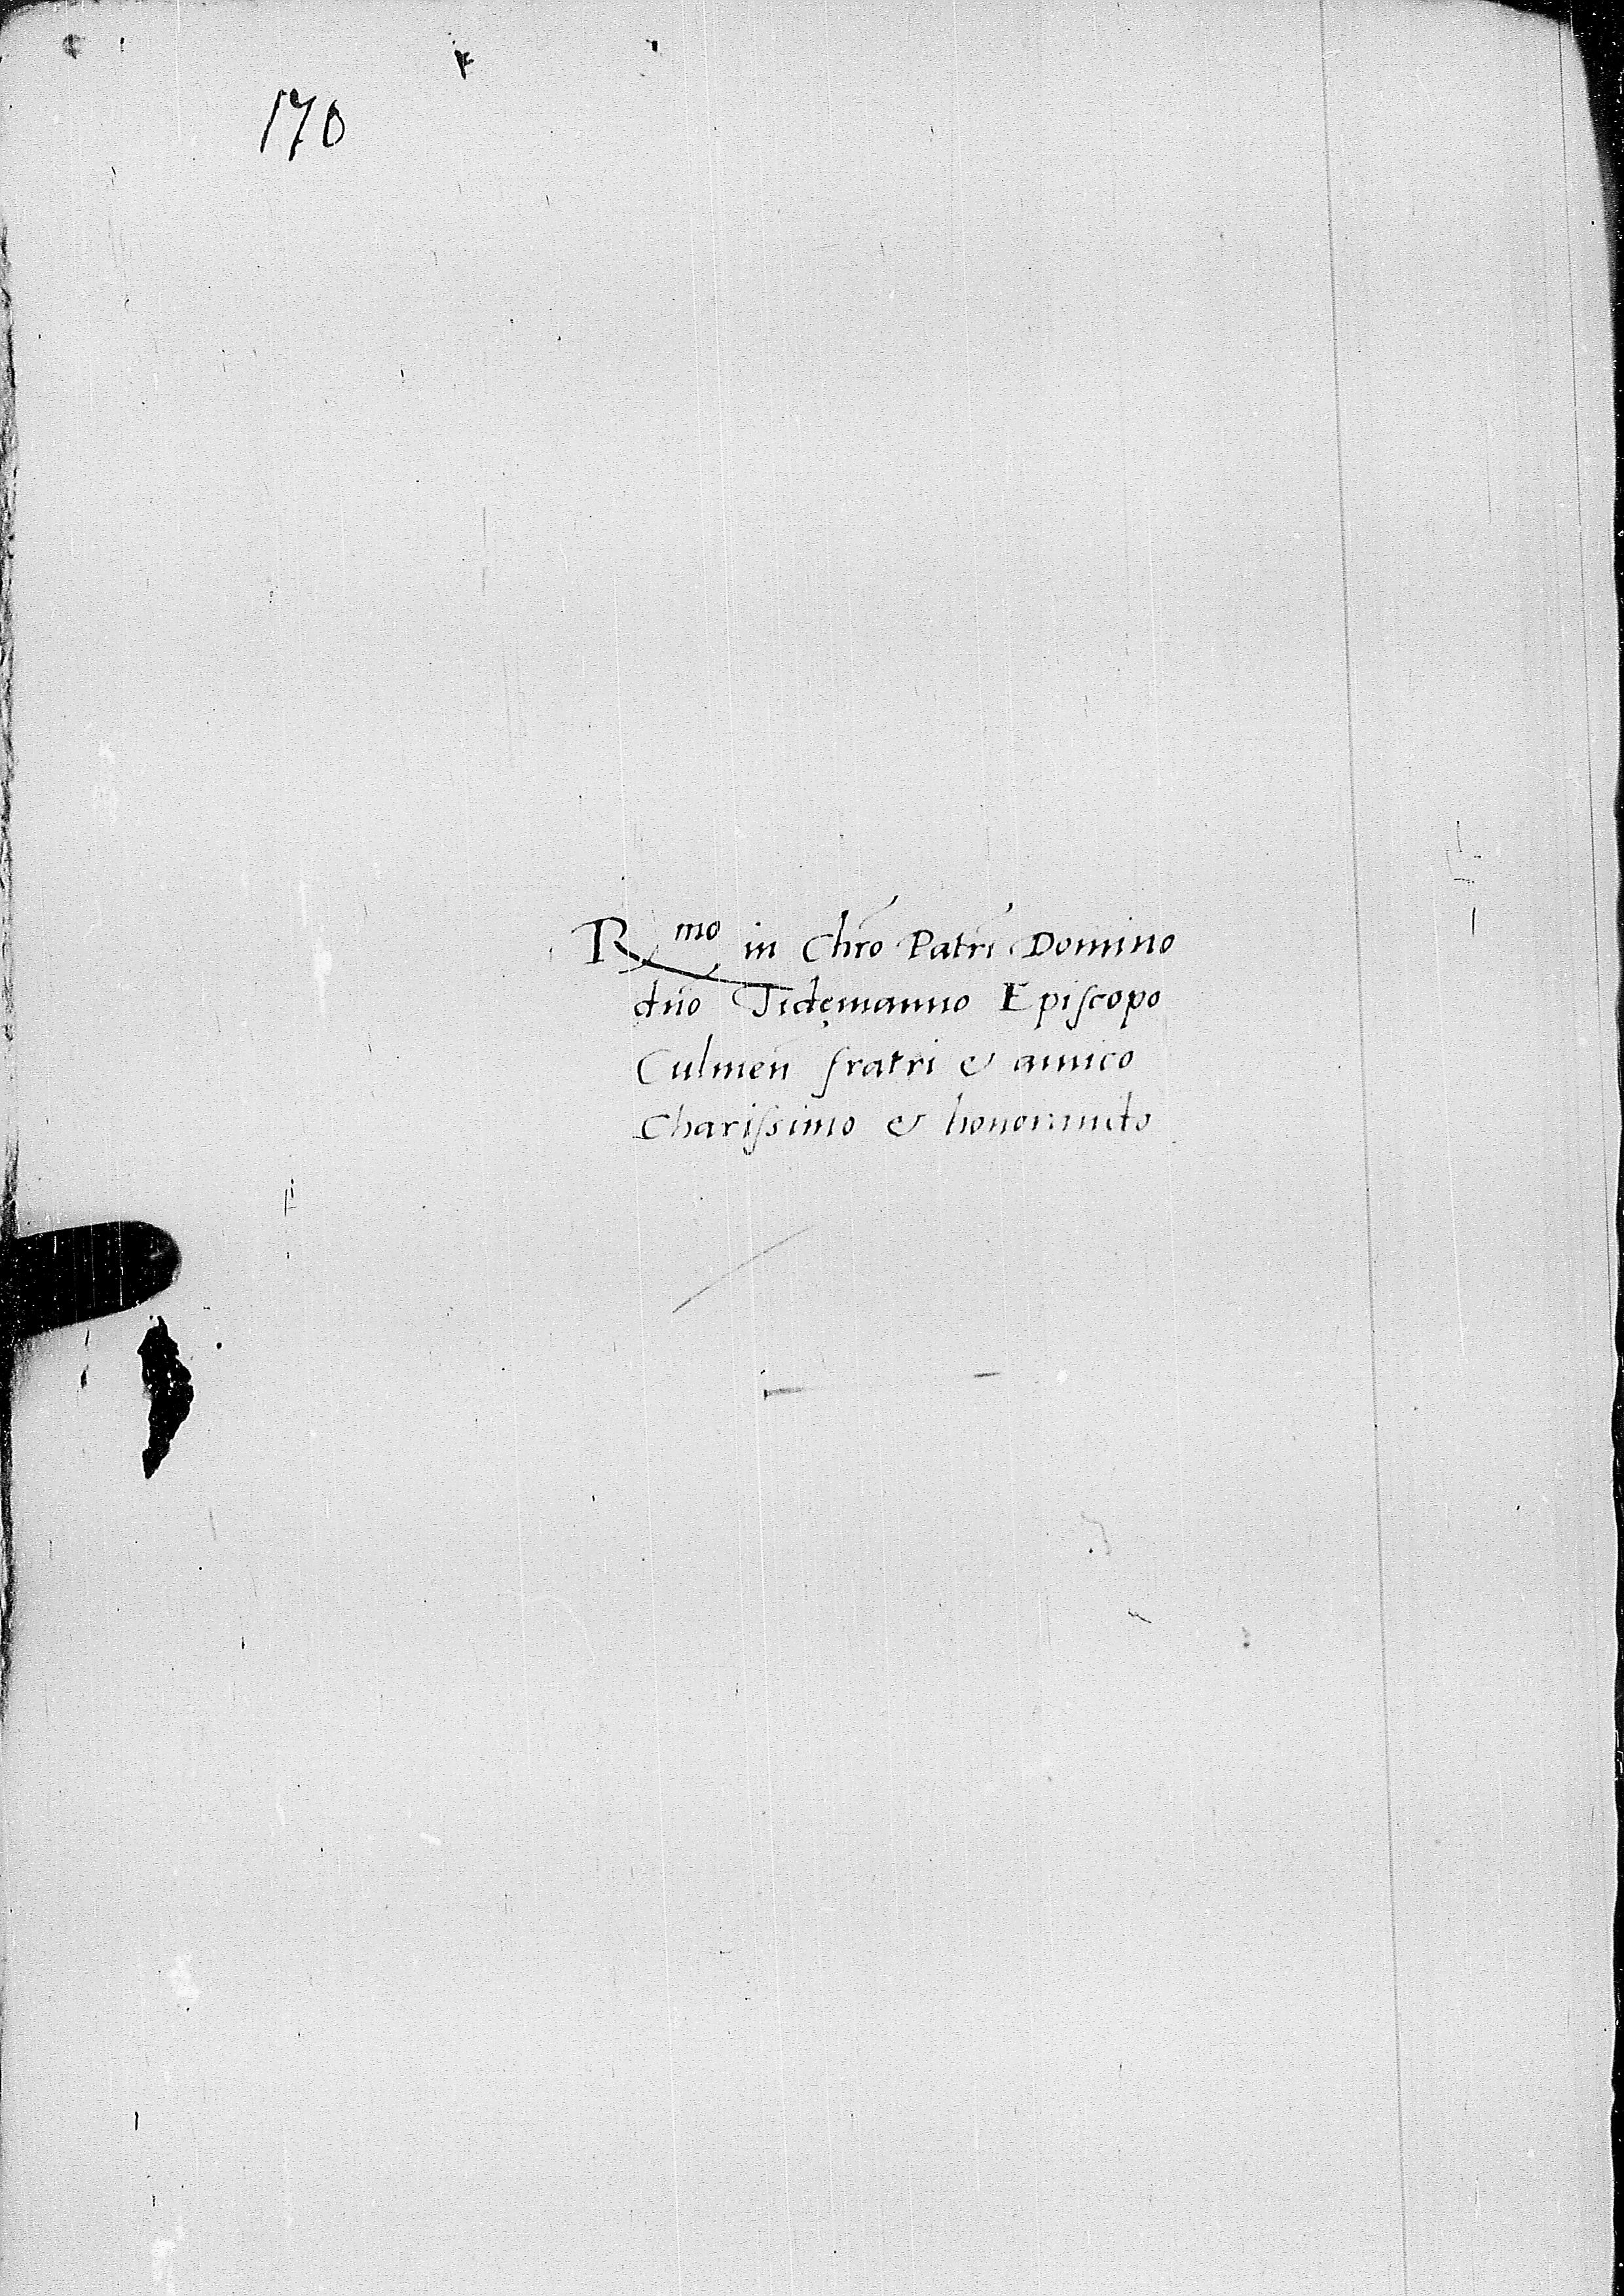 170
R^mo in Chr̄o Patri Domino
dn̄o Tidemanno Epiſcopo
Culmen̄ fratri & amico
Chariſsimo & honorando